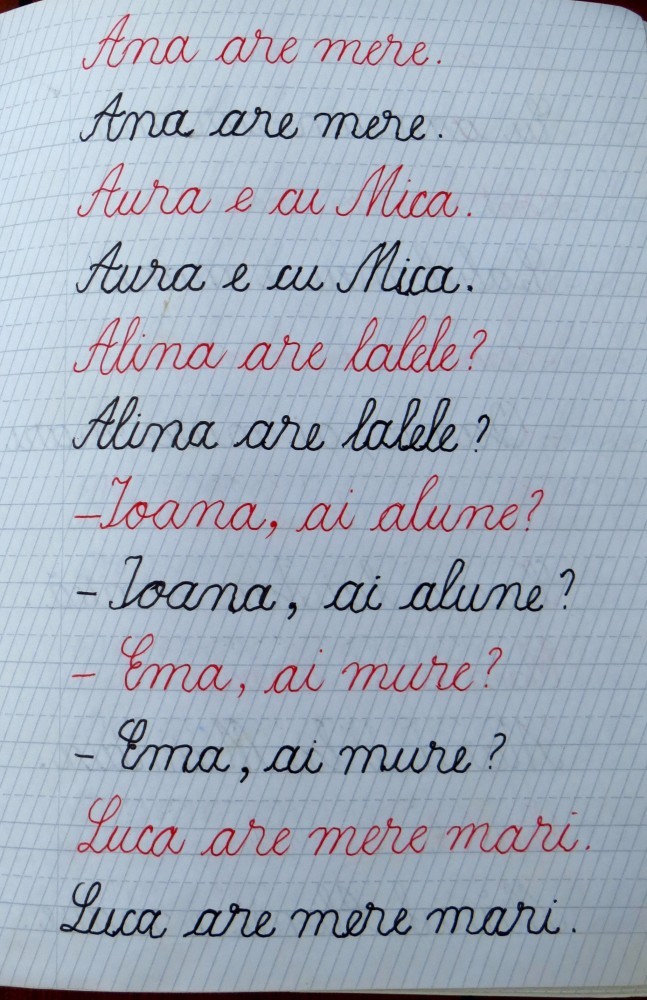 Ana are mere.
Ana are mere.
Aura e cu Mica.
Aura e cu Mica.
Alina are lalele?
Alina are lalele?
-Ioana, ai alune?
- Ioana, ai alune?
- Ema, ai mure?
- Ema, ai mure?
Luca are mere mari.
Luca are mere mari.